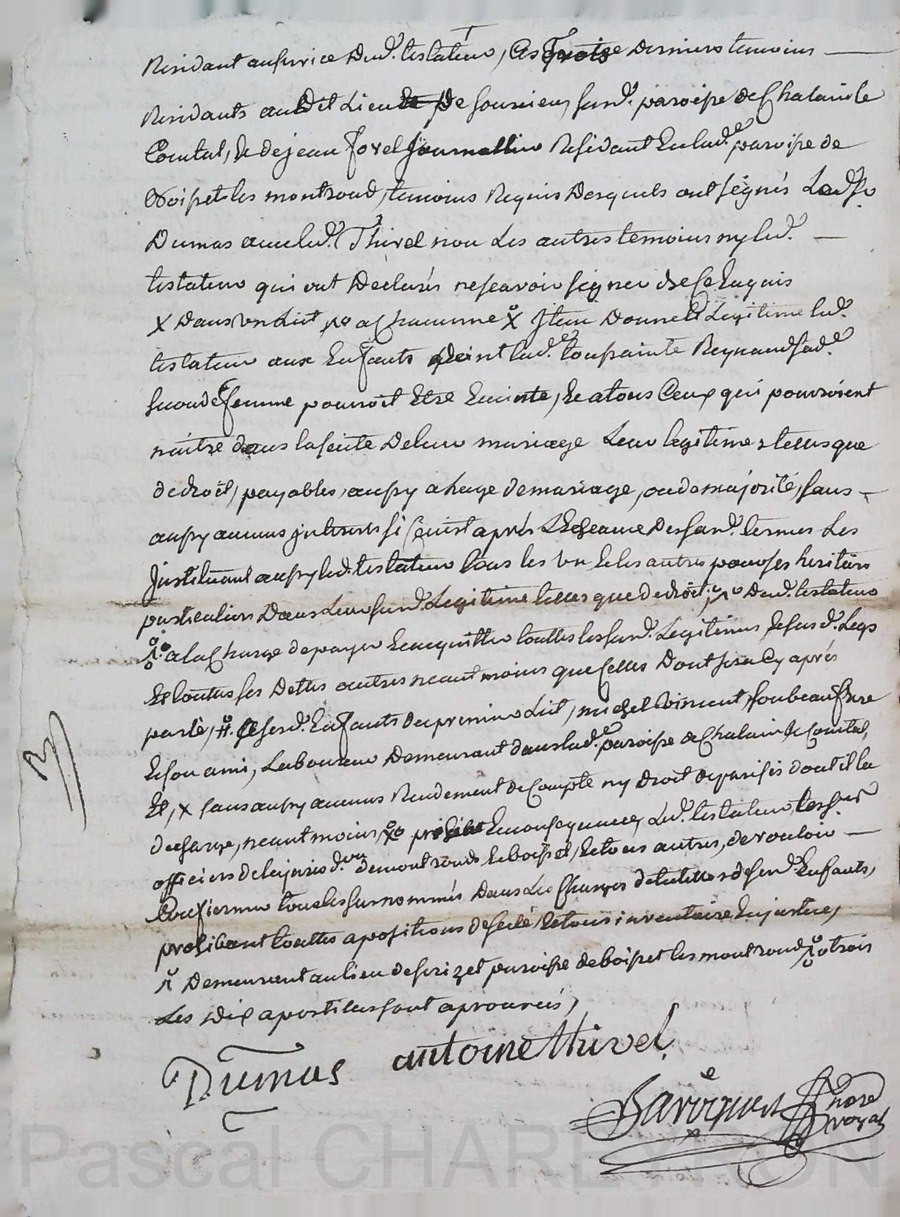 Residant au service Dud. testateur, Ces Trois Derniers temoins —
Residants audit Lieu De Sourcieu, susd. paroisse de Chalain le
Comtal, & de jean Forel Journallier Residant En lad.e paroisse de
Boisset les montrond, temoins Requis Desquels ont signés Led. Sr
Dumas avec led. Thivel non Les autres temoins ny led. —
testateur qui ont Declarés ne scavoir signer de ce Enquis
X Dans un Lit, a Chacunne X Item Donne & Legitime led.
testateur aux Enfants Dont lad.e toussainte Reynaud sad.e
seconde femme pourroit Etre Enceinte, & a tous Ceux qui pourroient
naitre dans la suite De leur mariage Leur legitime telle que
de droit, payables, aussy a l'age de mariage, ou de majorité, sans —
aussy aucuns jnterets si ce n'est après L'Echeance Desd. termes Les
jnstituant aussy led. testateur tous les un & les autres pour ses heritiers
particuliers Dans Leur susd. Legitime telle que de droit; Dud. testateur
a la Charge de payer & acquitter touttes les susd. Legitimes & susd. Legs
Et touttes ses Dettes autres neantmoins que celles Dont sera Cy après
parlé, sesd. Enfants du premier Lit, michel Vincent, son beaufrere
& son ami, Laboureur Demeurant dans lad.e paroisse de Chalain le Comtal,
Et, X sans aussy aucuns Rendement de Compte ny Droit de parifié dont il la
decharge, neantmoins, prohibe En consequence, Led. testateur
officiers de la jurisd.on de montrond & boisset, & tous autres, de vouloir —
Confirmer tous les surnommés Dans Les Charges de tutteurs desd. Enfants,
prohibant touttes apositions de scelé, & tous inventaire En justice,
Demeurent au lieu de paroisse de boisset les montrond trois
Les dix apostilles sont aprouvées,
Dumas antoine thivel
nore
royal
Pascal CHAREYRON